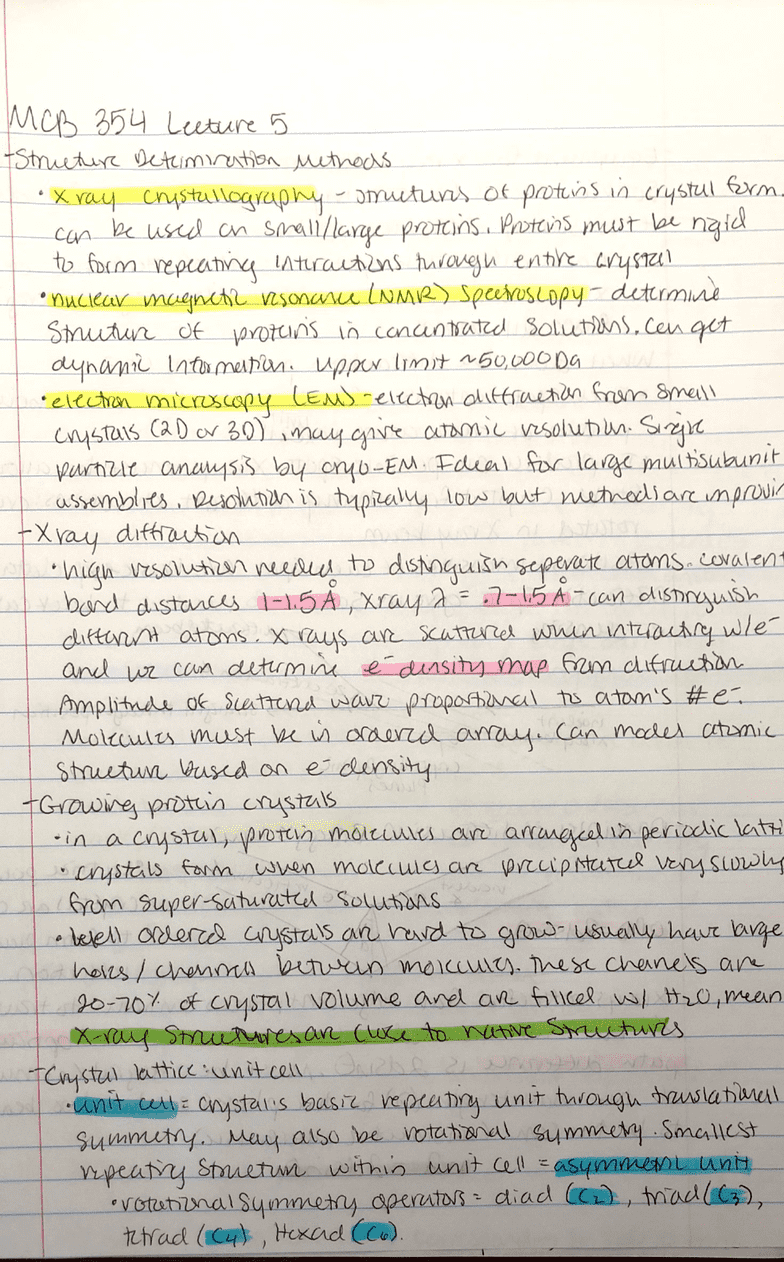 MCB 354 Lecture 5
- Structure Determination Methods
• X ray crystallography - structures of proteins in crystal form.
can be used on small/large proteins. Proteins must be rigid
to form repeating interactions through entire crystal
• nuclear magnetic resonance (NMR) spectroscopy - determine
structure of proteins in concentrated solutions. Can get
dynamic information. Upper limit ~50,000 Da
• electron microscopy (EM) - electron diffraction from small
crystals (2D or 3D), may give atomic resolution. Single
particle analysis by cryo-EM. Ideal for large multisubunit
assemblies. Resolution is typically low but methods are improvin
- X ray diffraction
• high resolution needed to distinguish seperate atoms. covalent
bond distances 1-1.5Å, xray λ = .7-1.5Å - can distinguish
different atoms. X rays are scattered when interacting w/e⁻
and we can determine e⁻ density map from difraction
Amplitude of scattered wave proportional to atom's #e⁻.
Molecules must be in ordered array. Can model atomic
structure based on e⁻ density
- Growing protein crystals
• in a crystal, protein molecules are arranged in periodic latti
• crystals form when molecules are precipitated very slowly
from super-saturated solutions
• Well ordered crystals are hard to grow - usually have large
holes / channels between molecules. These channels are
20-70% of crystal volume and are filled w/ H₂O, mean
X-ray structures are close to native structures
- Crystal lattice: unit cell
• unit cell = crystal's basic repeating unit through translational
symmetry. May also be rotational symmetry. Smallest
repeating structure within unit cell = asymmetric unit
• rotational symmetry operators = diad (C₂), triad (C₃),
tetrad (C₄), Hexad (C₆).